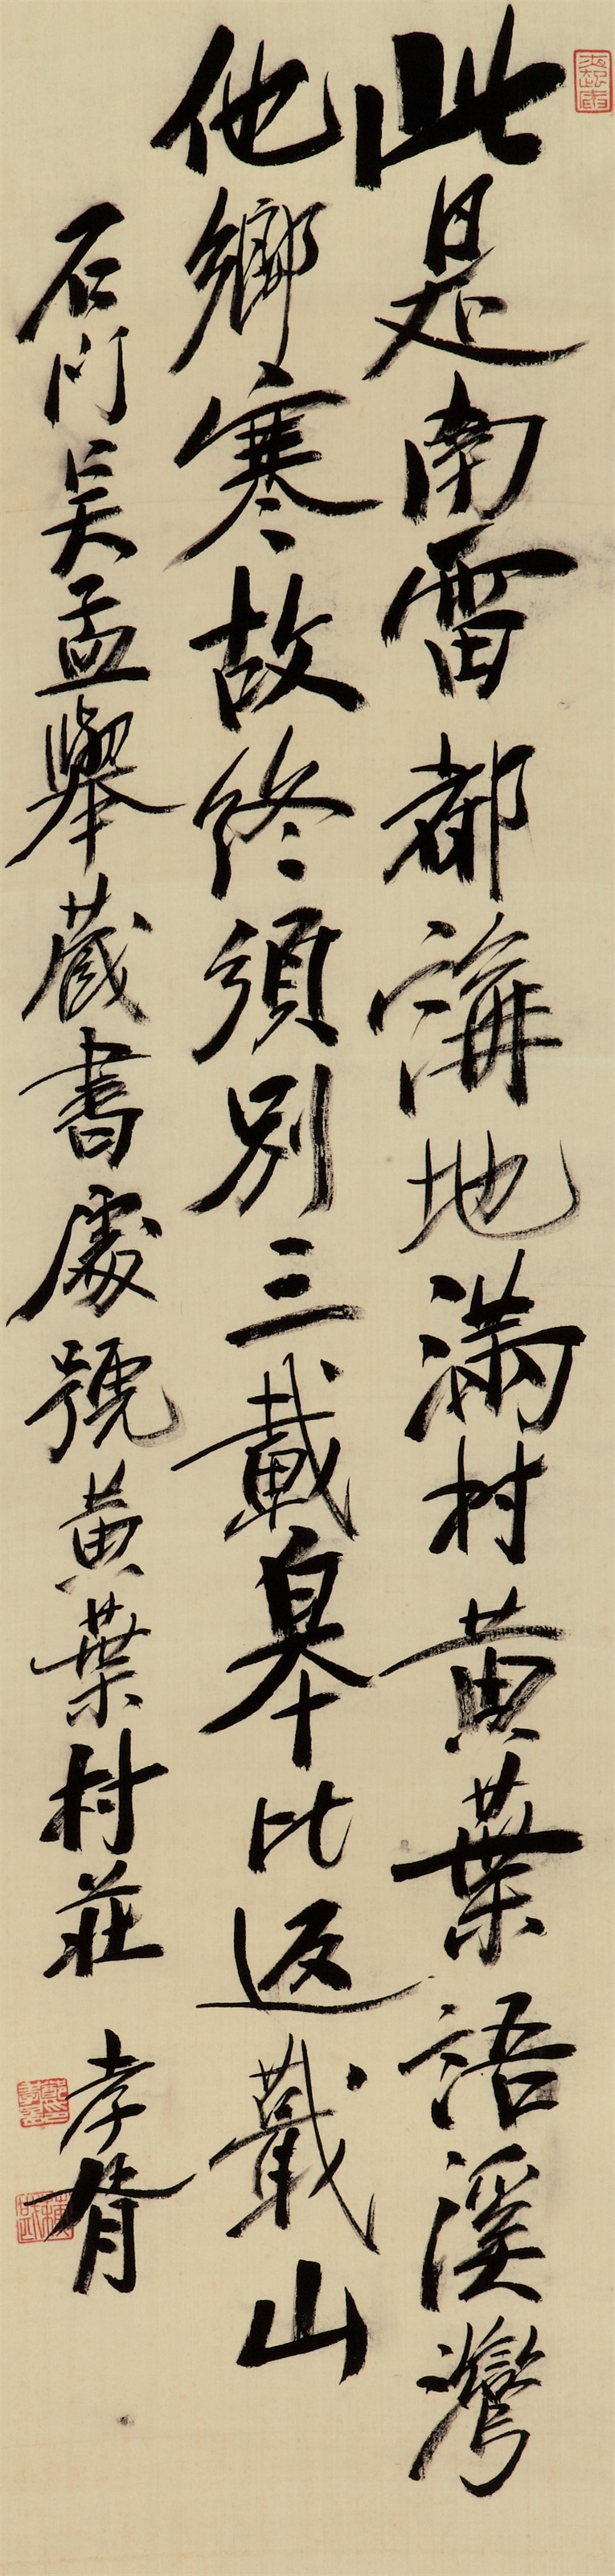 此是南雷都講地滿村黄葉語溪灣
他鄉寒故終須别三載皋比返蕺山
石门吴孟舉藏書處號黄葉村莊 孝胥